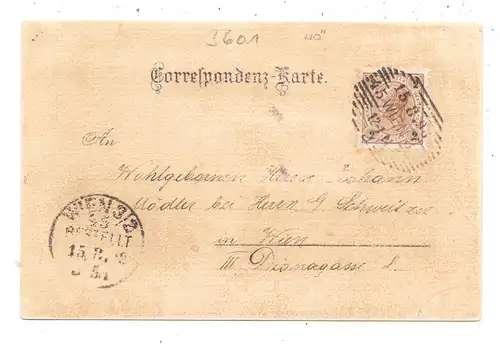 3601 NÖ
Correspondenz-Karte.
15.8.98
An
Wohlgeboren Herrn Johann
Mödler bei Herrn G. Schweitzer
in Wien
III. Dianagasse 8.
WIEN 3/2
BESTELLT
15.8.98